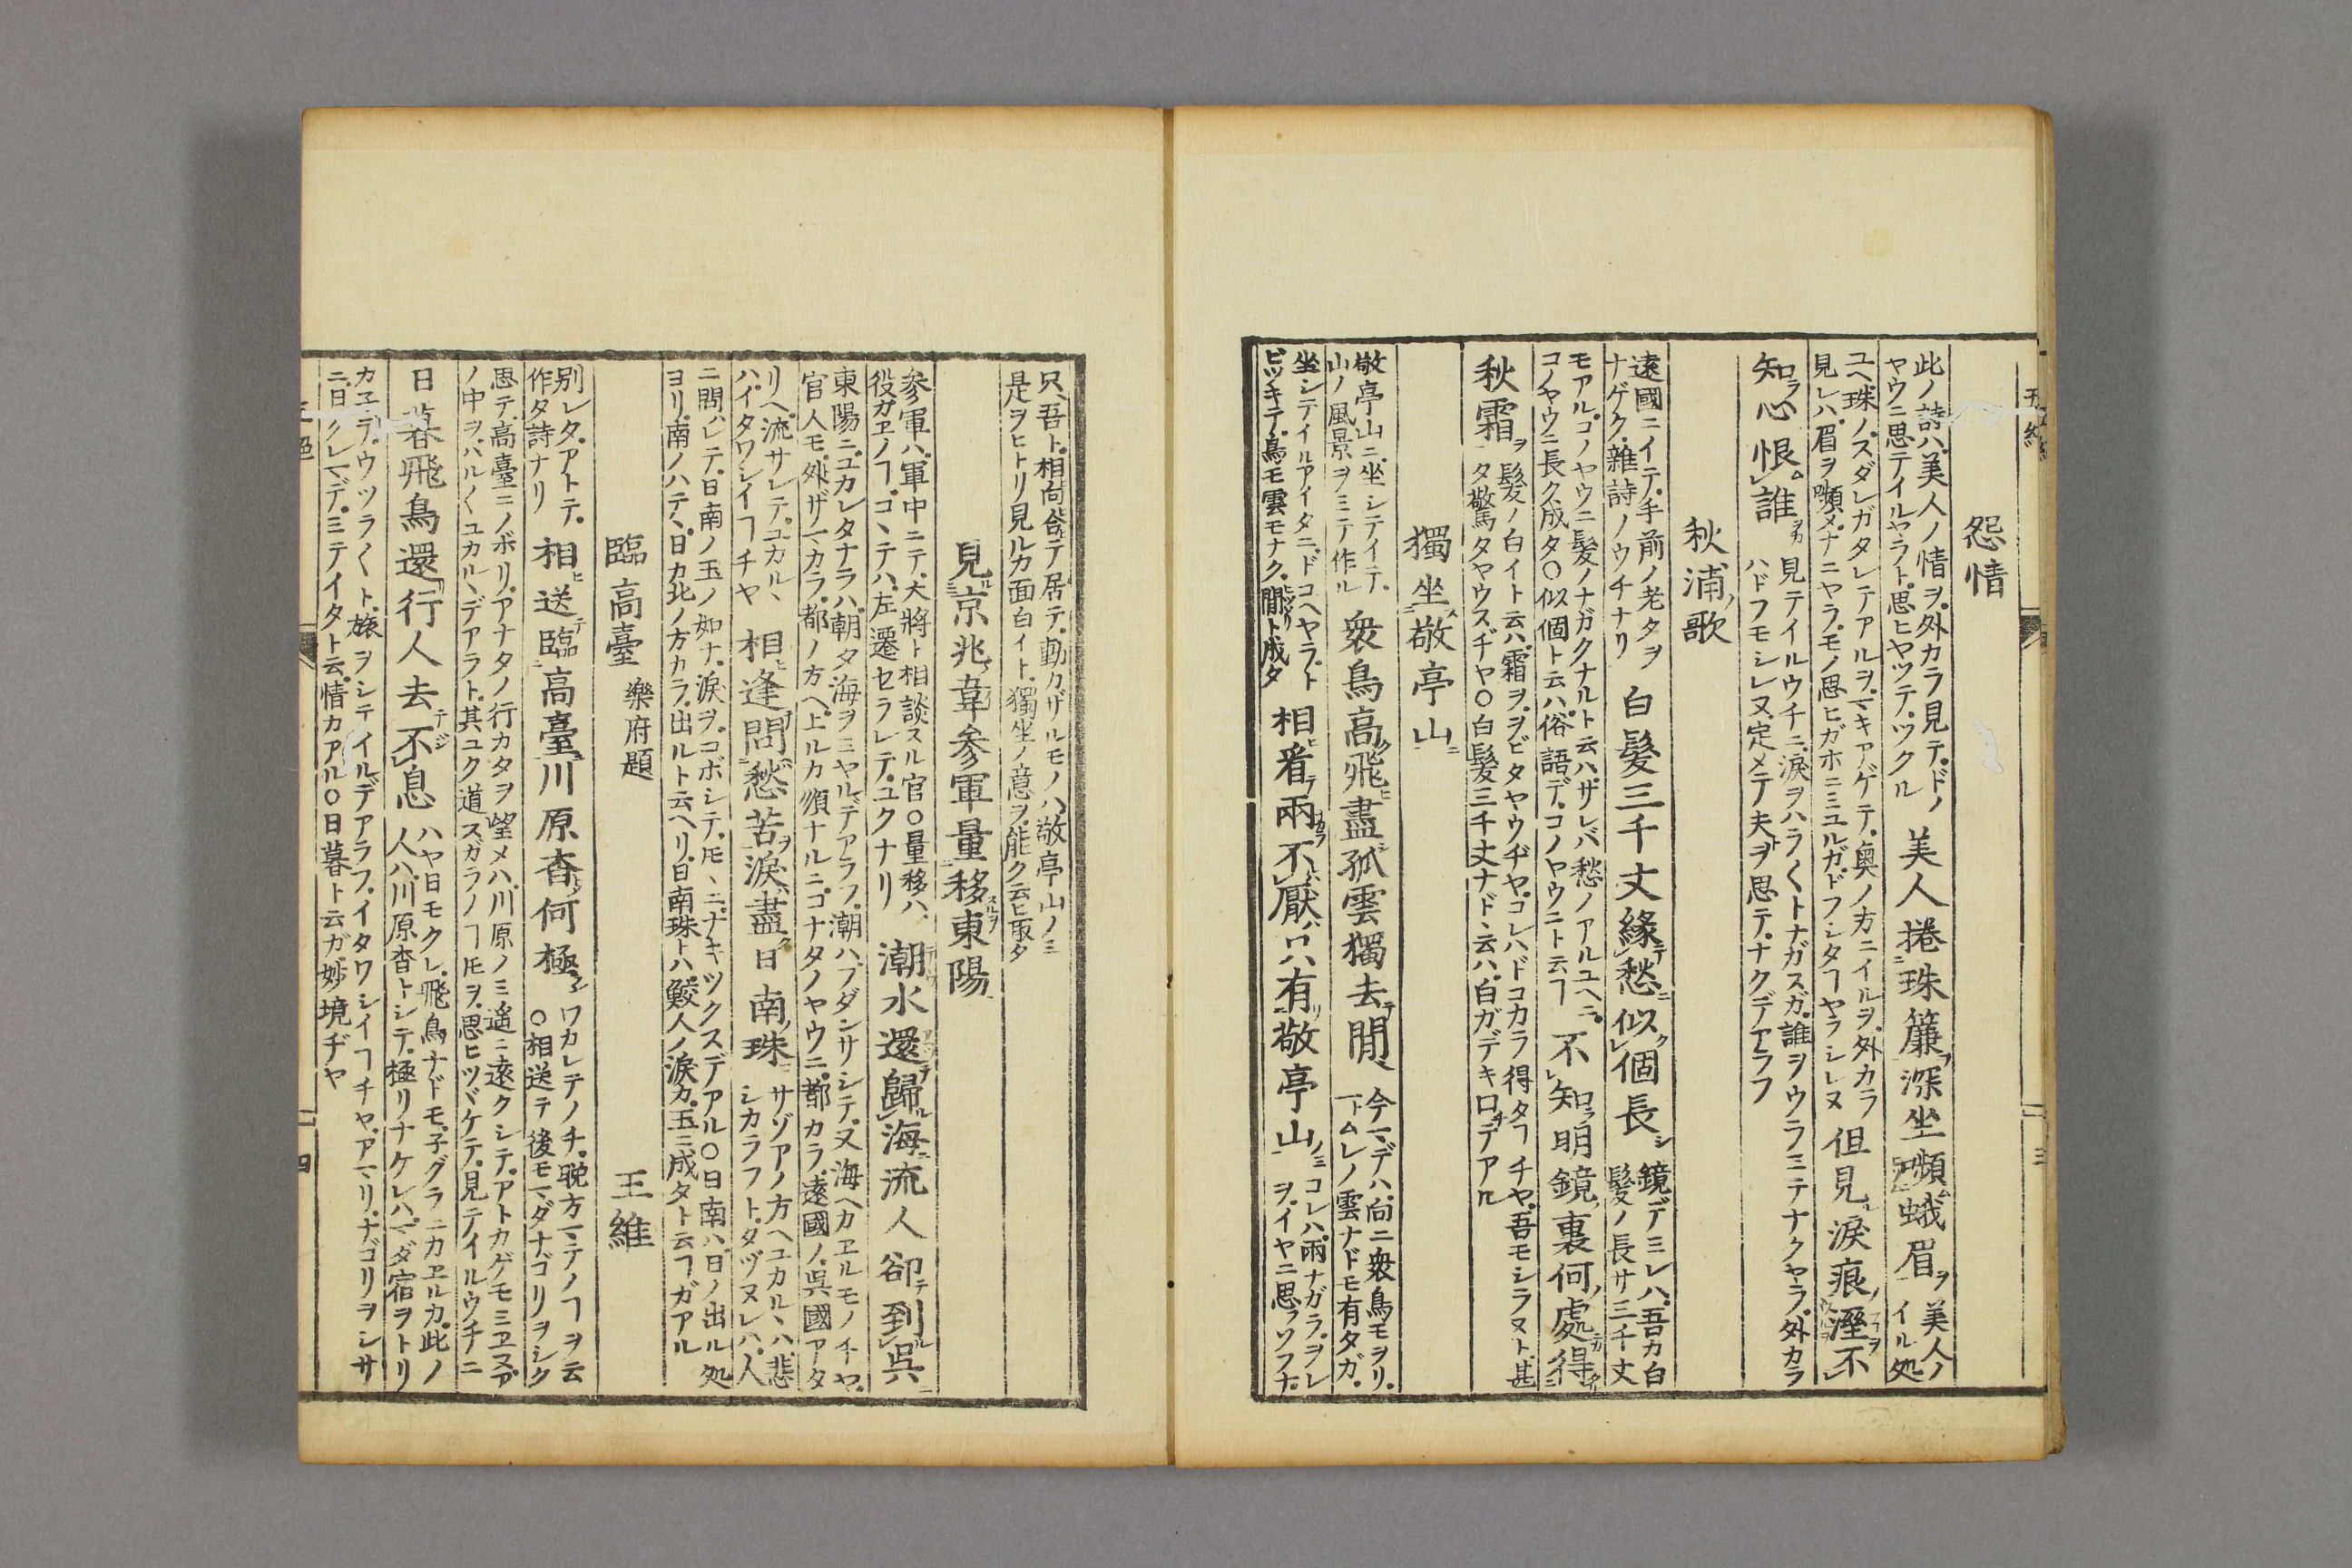 怨情
此ノ詩ハ美人ノ情ヲ外カラ見テドノ
ヤウニ思テイルヤラト思ヒヤツテツクル
美人捲珠簾深坐嚬蛾眉
美人ノ
イル処
ユヘ珠ノスダレガタレテアルヲマキアゲテ奥ノ方ニイルヲ外カラ
見レハ眉ヲ嚬メナニヤラモノ思ヒガホニミユルガドフシタヿヤラシレヌ
但見淚痕溼不
知心恨誰
見テイルウチニ淚ヲハラ〱トナガスガ誰ヲウラミテナクヤラ外カラ
ハドフモシレヌ定メテ夫ヲ思テナクデアラフ
秋浦歌
遠國ニイテ手前ノ老タヲ
ナゲク雜詩ノウチナリ
白髮三千丈緣愁似個長
鏡デミレハ吾カ白
髮ノ長サ三千丈
モアルコノヤウニ髮ノナガクナルト云ハザレバ愁ノアルユヘニ
コノヤウニ長ク成タ○似個ト云ハ俗語デコノヤウニト云ヿ
不知明鏡裏何處得
秋霜
髮ノ白イト云ハ霜ヲヲビタヤウヂヤコレハドコカラ得タヿチヤ吾モシラヌト甚
タ驚タヤウスヂヤ○白髮三千丈ナド云ハ白ガデキ口デアル
獨坐敬亭山
敬亭山ニ坐シテイテ
山ノ風景ヲミテ作ル
衆鳥高飛盡孤雲獨去閒
今マデハ向ニ衆鳥モヲリ
一トムレノ雲ナドモ有タガ
坐シテイルアイタニドコヘヤラト
ビツキテ鳥モ雲モナク閒ト成タ
相看兩不厭只有敬亭山
コレハ兩ナガラヲレ
ヲイヤニ思ラソフナ
只吾ト相向合テ居テ動カザルモノハ敬亭山ノミ
是ヲヒトリ見ルカ面白イト獨坐ノ意ヲ能ク云ヒ取タ
見京兆韋參軍量移東陽
參軍ハ軍中ニテ大將ト相談スル官○量移ハ
役ガヱノヿコヽテハ左遷セラレテユクナリ
潮水還歸海流人卻到吳
東陽ニユカレタナラハ朝タ海ヲミヤルデアラフ潮ハブダンサシテ又海ヘカヱルモノチヤ
官人モ外ザマカラ都ノ方ヘ上ルカ順ナルニコナタノヤウニ都カラ遠國ノ吳國アタ
リヘ流サレテユカルヽ
ハイタワシイヿチヤ
相逢問愁苦淚盡日南珠
サゾアノ方ヘユカルヽハ悲
シカラフトタヅヌレハ人
ニ問ハレテ日南ノ玉ノ如ナ淚ヲコボシテ𪜈ヽニナキツクスデアル○日南ハ日ノ出ル処
ヨリ南ノハテヽ日カ北ノ方カラ出ルト云ヘリ日南珠トハ鮫人ノ淚カ玉ニ成タト云ヿガアル
臨高臺 樂府題 王維
別レタアトテ
作タ詩ナリ
相送臨高臺川原杳何極
ワカレテノチ晩方マテノヿヲ云
○相送テ後モマダナゴリヲシク
思テ高臺ニノボリアナタノ行カタヲ望メハ川原ノミ遙ニ遠クシテアトカゲモミヱヌア
ノ中ヲハル〱ユカルヽデアラト其ユク道スガラノヿ𪜈ヲ思ヒツヾケテ見テイルウチニ
日暮飛鳥還行人去不息
ハヤ日モクレ飛鳥ナドモ子グラニカヱルカ此ノ
人ハ川原杳トシテ極リナケレハマダ宿ヲトリ
カヱテウツラ〱ト旅ヲシテイルデアラフイタワシイヿチヤアマリナゴリヲシサ
ニ日クレマデミテイタト云情カアル○日暮ト云ガ妙境ヂヤ
二 四